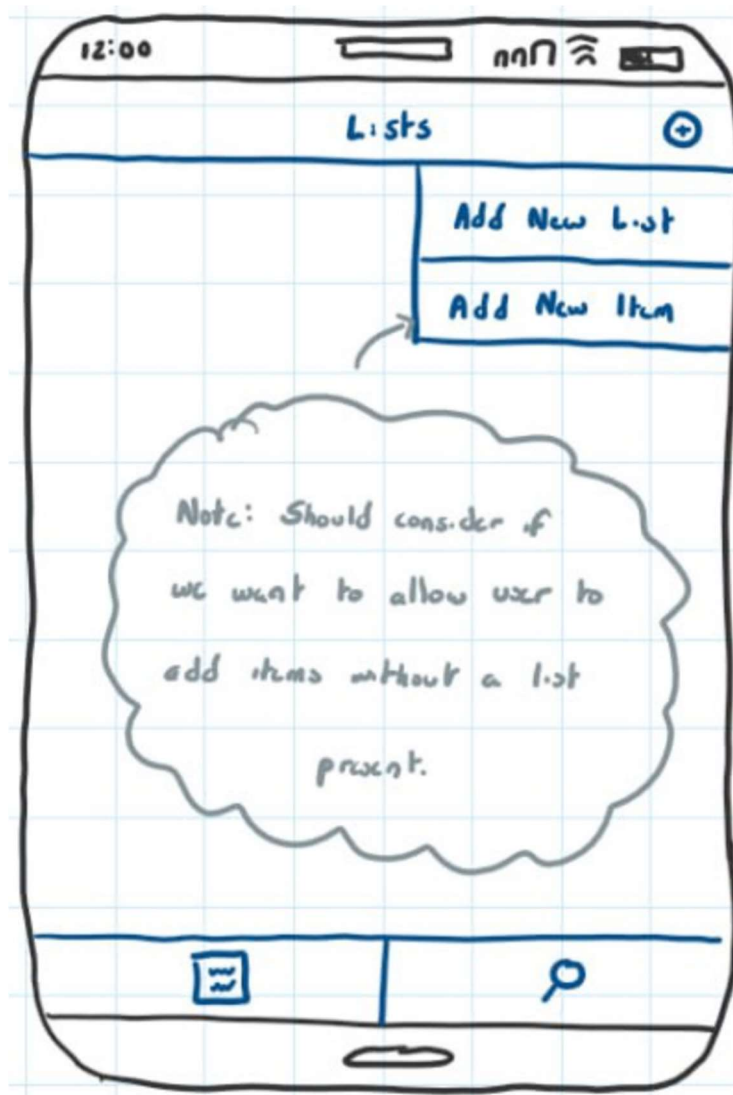 12:00
Lists
Add New List
Add New Item
Note: Should consider if
we want to allow user to
add items without a list
present.